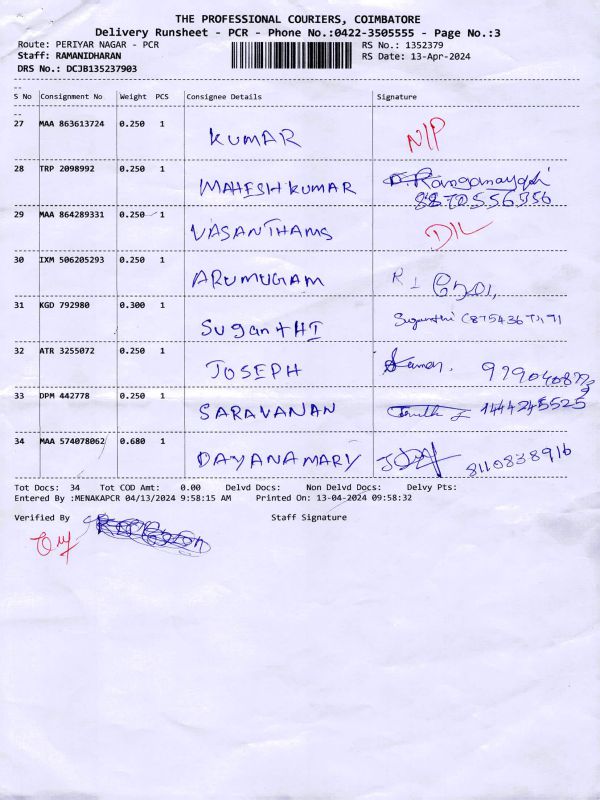 THE PROFESSIONAL COURIERS, COIMBATORE
Delivery Runsheet - PCR - Phone No.:0422-3505555 - Page No.:3
Route: PERIYAR NAGAR - PCR RS No.: 1352379
Staff: RAMANIDHARAN RS Date: 13-Apr-2024
DRS No.: DCJB135237903
S No Consignment No Weight PCS Consignee Details Signature
27 MAA 863613724 0.250 1 KUMAR N/P
28 TRP 2098992 0.250 1 MAHESH KUMAR
8870556356
29 MAA 864289331 0.250 1 VASANTHAMS D/L
30 IXM 506205293 0.250 1 ARUMUGAM
31 KGD 792980 0.300 1 SuganTHI
32 ATR 3255072 0.250 1 JOSEPH
33 DPM 442778 0.250 1 SARAVANAN
34 MAA 574078062 0.680 1 DAYANAMARY 8110838916
Tot Docs: 34 Tot COD Amt: 0.00 Delvd Docs: Non Delvd Docs: Delvy Pts:
Entered By :MENAKAPCR 04/13/2024 9:58:15 AM Printed On: 13-04-2024 09:58:32
Verified By Staff Signature